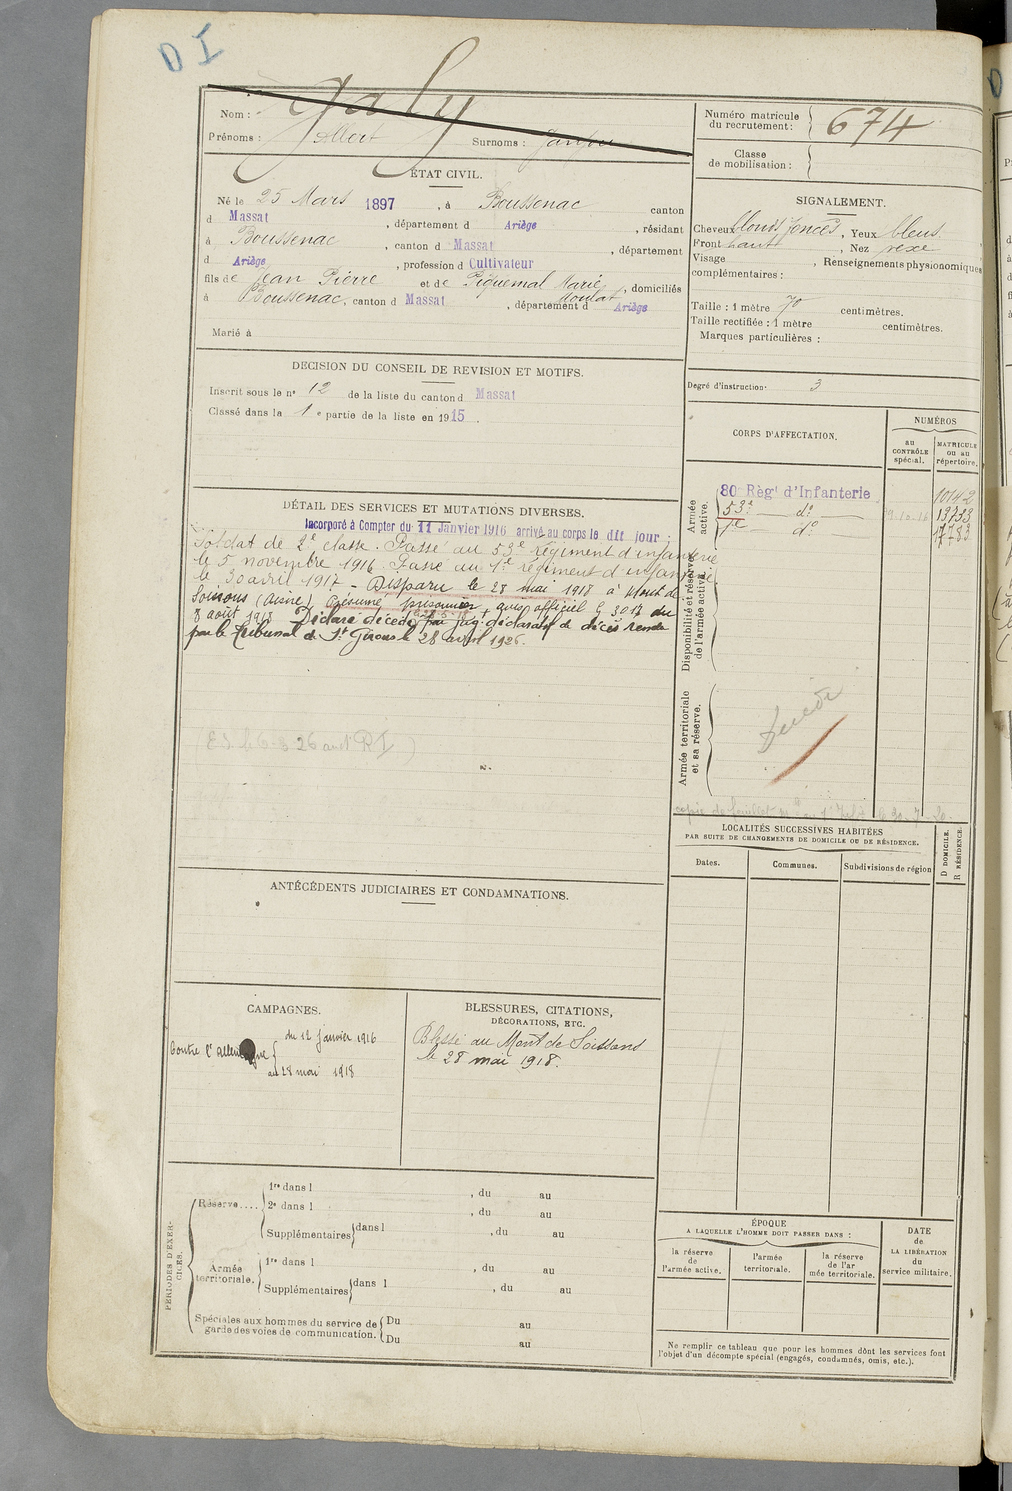 D I
Nom : Galy
Prénoms : Albert Surnoms :
Numéro matricule du recrutement : 674
Classe de mobilisation :
ÉTAT CIVIL.
Né le 25 Mars 1897, à Boussenac canton
d Massat, département d Ariège, résidant
à Boussenac, canton d Massat, département
d Ariège, profession d Cultivateur
fils de Jean Pierre et de Piquemal Marie, domiciliés
à Boussenac, canton d Massat, département d Ariège
Marié à
SIGNALEMENT.
Cheveux blonds foncés, Yeux bleus
Front haut, Nez vexe
Visage , Renseignements physionomiques
complémentaires :
Taille : 1 mètre 70 centimètres.
Taille rectifiée : 1 mètre centimètres.
Marques particulières :
DÉCISION DU CONSEIL DE REVISION ET MOTIFS.
Inscrit sous le nº 12 de la liste du canton d Massat
Classé dans la 1e partie de la liste en 1915.
Degré d'instruction. 3
CORPS D'AFFECTATION.
NUMÉROS
au CONTRÔLE spécial.
MATRICULE ou au répertoire.
Armée active.
80e Régt d'Infanterie 10142
53e dº 9-10-16 13753
1e dº 17783
Disponibilité et réserve de l'armée active.
Armée territoriale et sa réserve.
DÉTAIL DES SERVICES ET MUTATIONS DIVERSES.
Incorporé à Compter du 11 Janvier 1916 arrivé au corps le dit jour
Soldat de 2e classe. Passé au 53e régiment d'infanterie
le 5 novembre 1916. Passé au 1e régiment d'infanterie
le 30 avril 1917 - Disparu le 28 mai 1918 à Mont de
Soissons (Aisne) Présumé prisonnier avis officiel G 3017 du
8 août 1918 Déclaré décédé par jug. déclaratif de décès rendu
par le Tribunal de St Girons le 28 avril 1926.
LOCALITÉS SUCCESSIVES HABITÉES
PAR SUITE DE CHANGEMENTS DE DOMICILE OU DE RÉSIDENCE.
Dates. Communes. Subdivisions de région D DOMICILE. R RÉSIDENCE.
ANTÉCÉDENTS JUDICIAIRES ET CONDAMNATIONS.
CAMPAGNES.
Contre l'allemagne du 12 janvier 1916
au 28 mai 1918
BLESSURES, CITATIONS,
DÉCORATIONS, ETC.
Blessé au Mont de Soissons
le 28 mai 1918.
PÉRIODES D'EXERCICES.
Réserve.... 1re dans l , du au
2e dans l , du au
Supplémentaires dans l , du au
Armée territoriale. 1re dans l , du au
Supplémentaires dans l , du au
Spéciales aux hommes du service de garde des voies de communication. Du au
Du au
ÉPOQUE
A LAQUELLE L'HOMME DOIT PASSER DANS :
la réserve de l'armée active.
l'armée territoriale.
la réserve de l'armée territoriale.
DATE de LA LIBÉRATION du service militaire.
Ne remplir ce tableau que pour les hommes dont les services font
l'objet d'un décompte spécial (engagés, condamnés, omis, etc.).